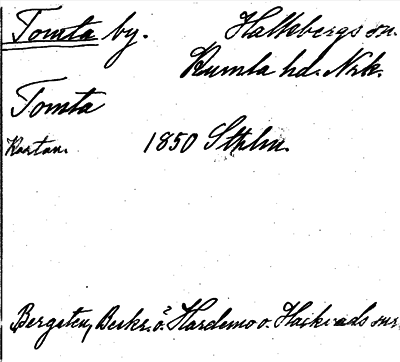 Tomta by. Hallsbergs sn.
Kumla hd. Nrk.
Tomta
Kartan. 1850 Sthlm.
Bergsten, Beskr. ö. Hardemo o. Hackvads snr